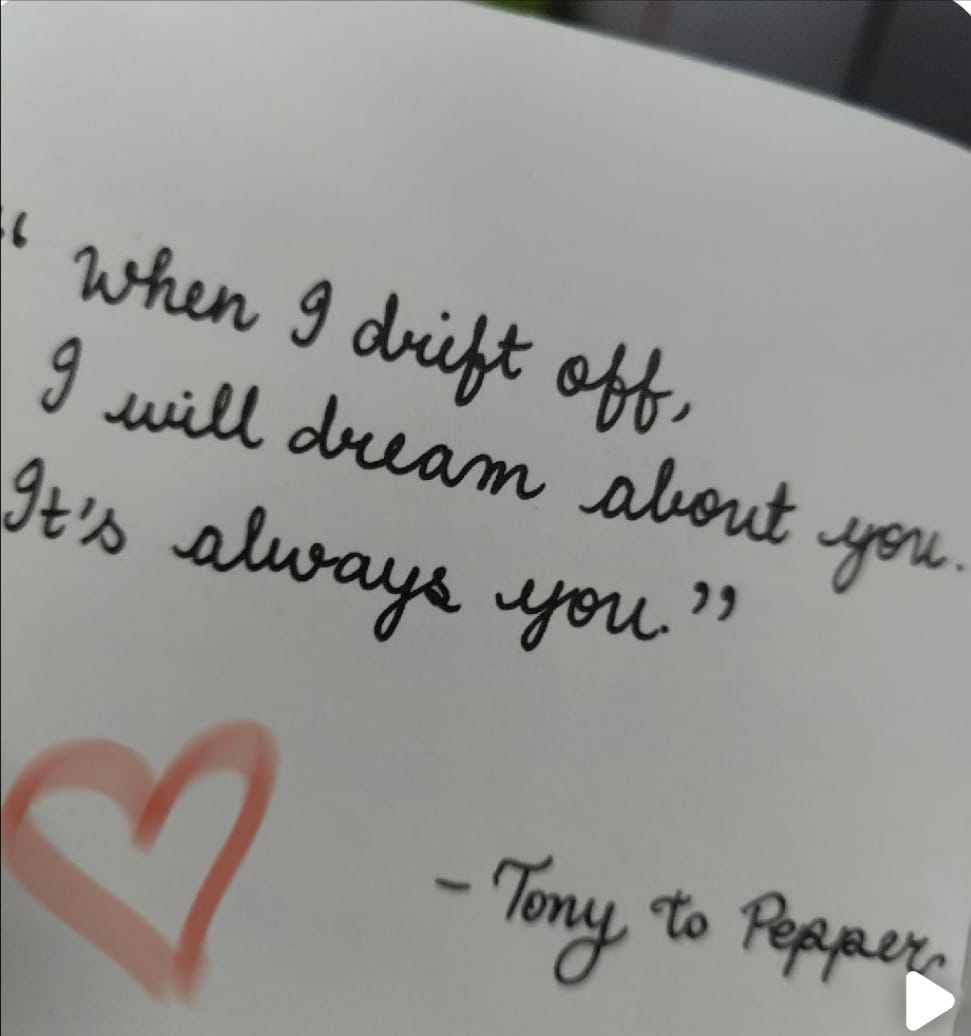 “ When I drift off,
I will dream about you.
It's always you.”
- Tony to Pepper